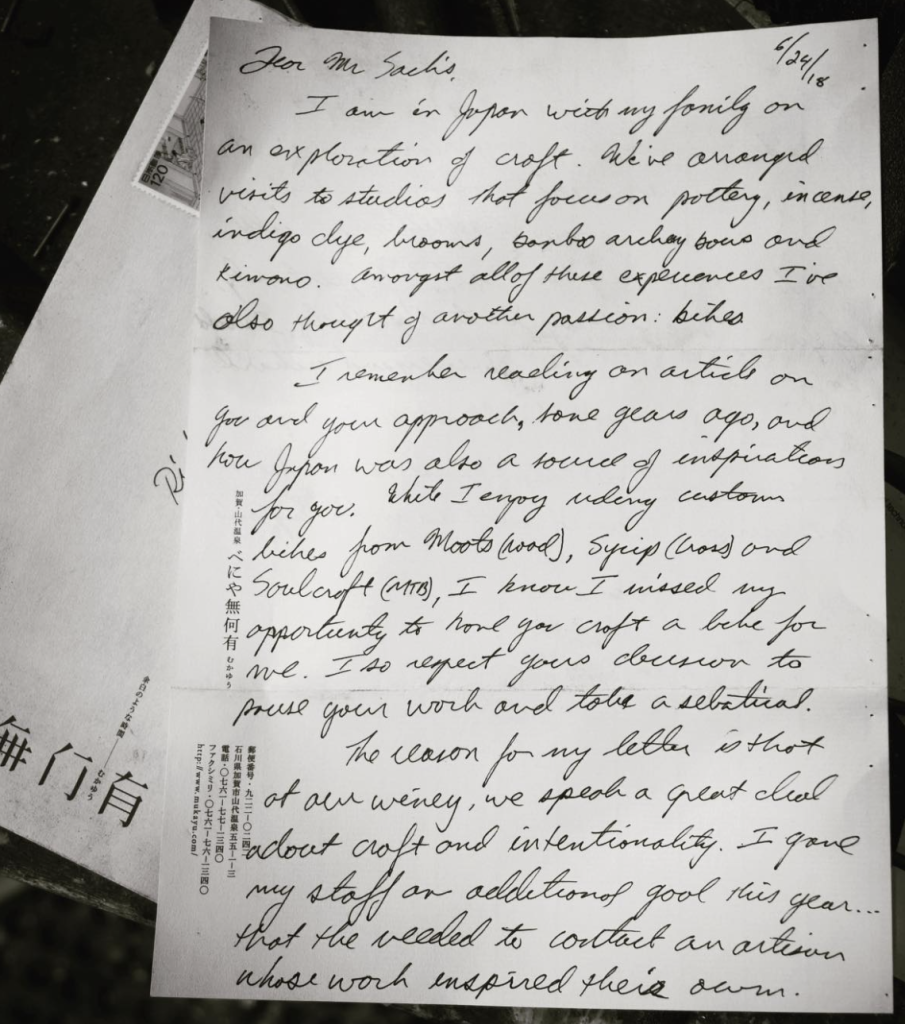 6/24/18
Dear Mr Sachs,
I am in Japan with my family on
an exploration of craft. We've arranged
visits to studios that focus on pottery, incense,
indigo dye, brooms, bonboo archey bows and
Kimono. Amongst all of these experiences I've
also thought of another passion: bikes
I remember reading an article on
you and your approach, some years ago, and
how Japan was also a source of inspirations
for you. While I enjoy riding custom
bikes from Moots (road), Sycip (cross) and
Soulcraft (MTB), I know I missed my
opportunity to have you craft a bike for
me. I so respect yours decision to
pause your work and take a sebatical.
The reason for my letter is that
at our winery, we speak a great deal
about craft and intentionality. I gave
my staff an additional goal this year...
that the needed to contact an artisan
whose work inspired their own.
加賀・山代温泉 べにや無何有 むかゆう
郵便番号・九二二―〇二四二
石川県加賀市山代温泉五五―一―三
電話・〇七六一―七七―一三四〇
ファクシミリ・〇七六一―七六―一三四〇
http://www.mukayu.com/
日本郵便
120
Ri
余白のような時間――むかゆう
無何有